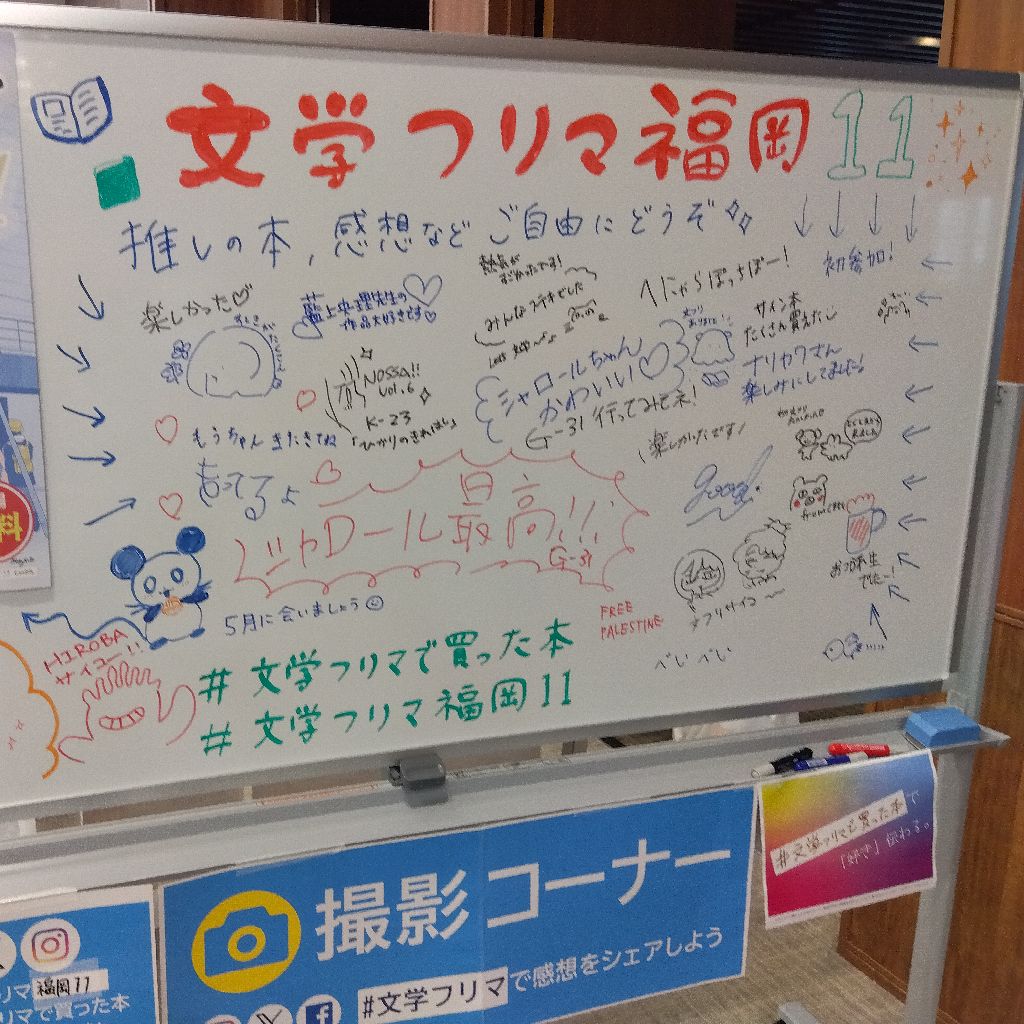 文学フリマ福岡11
推しの本,感想などご自由にどうぞ
初参加!
へにゃらぽっちぽー!
みんなステキでした
楽しかった♡
先生の
作品大好きです♡
サイン本
たくさん買えたし
シャロールちゃん
かわいい♡
G-31 行ってみてネ!
ナリカワさん
楽しみにしてました!
NOSSA!!
vol.6
K-23
「ひかりのきれはし」
もうちゃんきたきてね
楽しかったです!
good!
シャロール最高!!
G-31
5月に会いましょう☺
FREE
PALESTINE
べいべい
HIROBA
サイコー!!
#文学フリマで買った本
#文学フリマ福岡11
#文学フリマで買った本で
「好き」伝わる。
撮影コーナー
#文学フリマで感想をシェアしよう
福岡11
で買った本
料